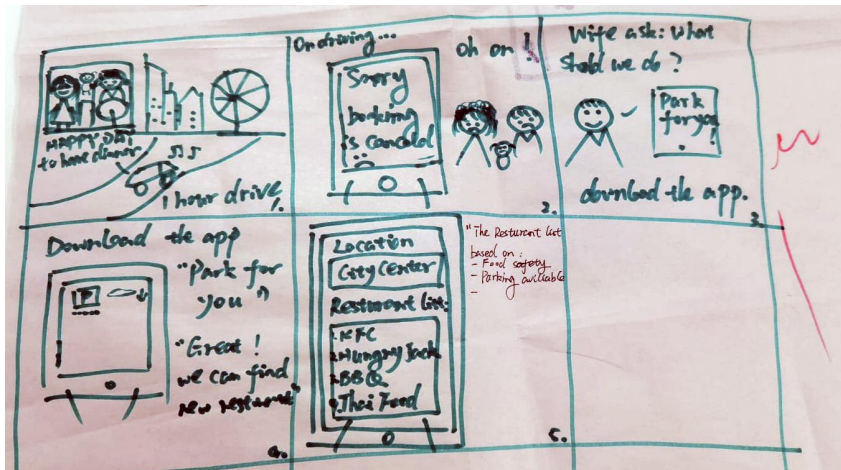 HAPPY DAY
to have dinner
1 hour drive
1.
On driving...
Sorry
booking
is canceld
oh on !
2.
Wife ask: What
shold we do ?
Park
for you
!
download the app.
3.
Download the app
"Park for
you"
P
"Great !
we can find
new resturent"
4.
Location
City Center
Resturent list:
1.KFC
2.Hungry Jack
3.BBQ
4.Thai Food
"The Resturent list
based on :
- Food safety
- Parking available
-
5.